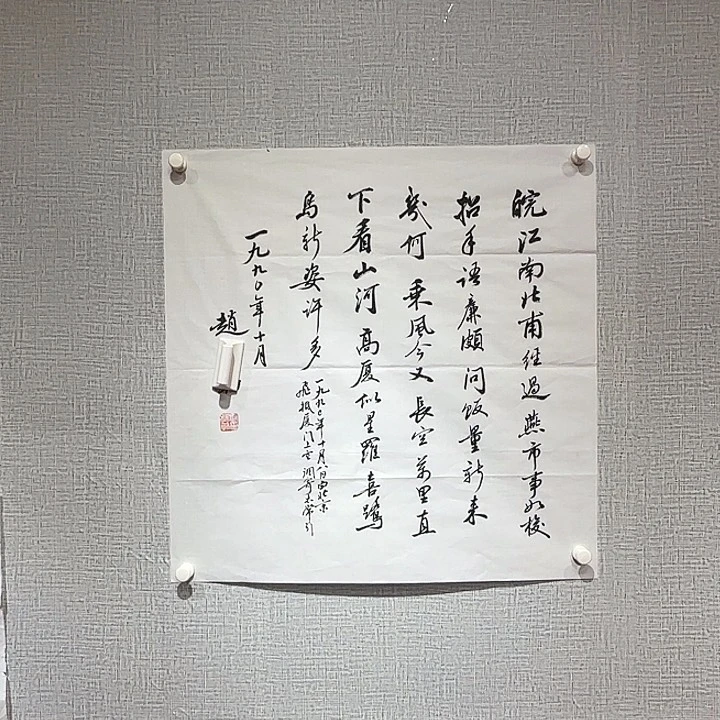 皖江南北甫经过燕市事如梭
招手语廉颇问饭量新来
几何 乘风今又長空万里直
下看山河高厦似星羅喜鷺
岛新姿许多
一九九〇年十月八日由北京
飞抵厦门上空调寄太常引
一九九〇年十月
趙